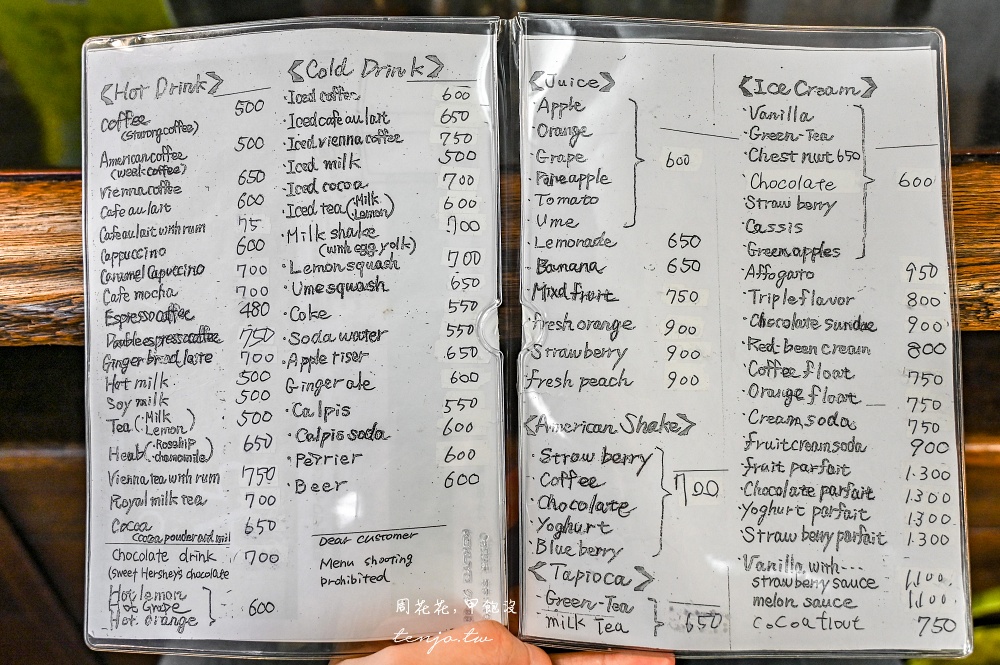 《Hot Drink》
coffee 500
(strong coffee)
American coffee 500
(week coffee)
Vienna coffee 650
Cafe au lait 600
Cafe au lait with rum 75
Cappuccino 600
Caramel Capuccino 700
Cafe mocha 700
Espresso coffee 480
Double espresso coffee 750
Ginger bread latte 700
Hot milk 500
Soy milk 500
Tea (・Milk ・Lemon) 500
Heab (・Rosehip ・chamomile) 650
Vienna tea with rum 750
Royal milk tea 700
Cocoa 650
cocoa powder and mil
Chocolate drink 700
(sweet Hershey's chocolate
Hot lemon
Hot Grape 600
Hot orange
《Cold Drink》
・Iced coffee 600
・Iced cafe au lait 650
・Iced vienna coffee 750
・Iced milk 500
・Iced cocoa 700
・Iced tea (・Milk ・Lemon) 600
・Milk shake 700
(with egg yolk)
・Lemon squash 700
・Ume squash 650
・Coke 550
・Soda water 550
・Apple tiser 650
Ginger ale 600
・Calpis 550
・Calpis soda 600
・Perrier 600
・Beer 600
Dear customer
Menu shooting
prohibited
《Juice》
・Apple
・Orange
・Grape 600
・Pineapple
・Tomato
・Ume
・Lemonade 650
・Banana 650
・Mixd fruit 750
fresh orange 900
・Strawberry 900
fresh peach 900
《American Shake》
・Straw berry
・Coffee
・Chocolate 700
・Yoghurt
・Blue berry
《Tapioca》
・Green-Tea
milk Tea 650
《Ice Cream》
・Vanilla
・Green-Tea
・Chest nut 650
・Chocolate 600
・Straw berry
・Cassis
・Green apples
・Affogato 950
・Triple flavor 800
・Chocolate sundae 900
・Red-been cream 800
・Coffee float 750
・Orange float 750
・Cream soda 750
・fruit cream soda 900
・fruit parfait 1.300
・Chocolate parfait 1.300
・Yoghurt parfait 1.300
・Straw berry parfait 1.300
Vanilla with---
strawberry sauce 1,100
melon sauce 1,100
cocoa flout 750
周花花，甲飽沒
tenjo.tw